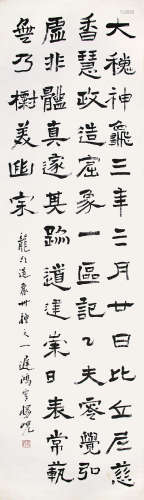 大魏神龜三年三月廿日比丘尼慈
香慧政造窟象一區記乙夫零覺弘
虛非體真邃其跡道建崇日表常軌
無乃標美幽宗
龍門造象卅種之一